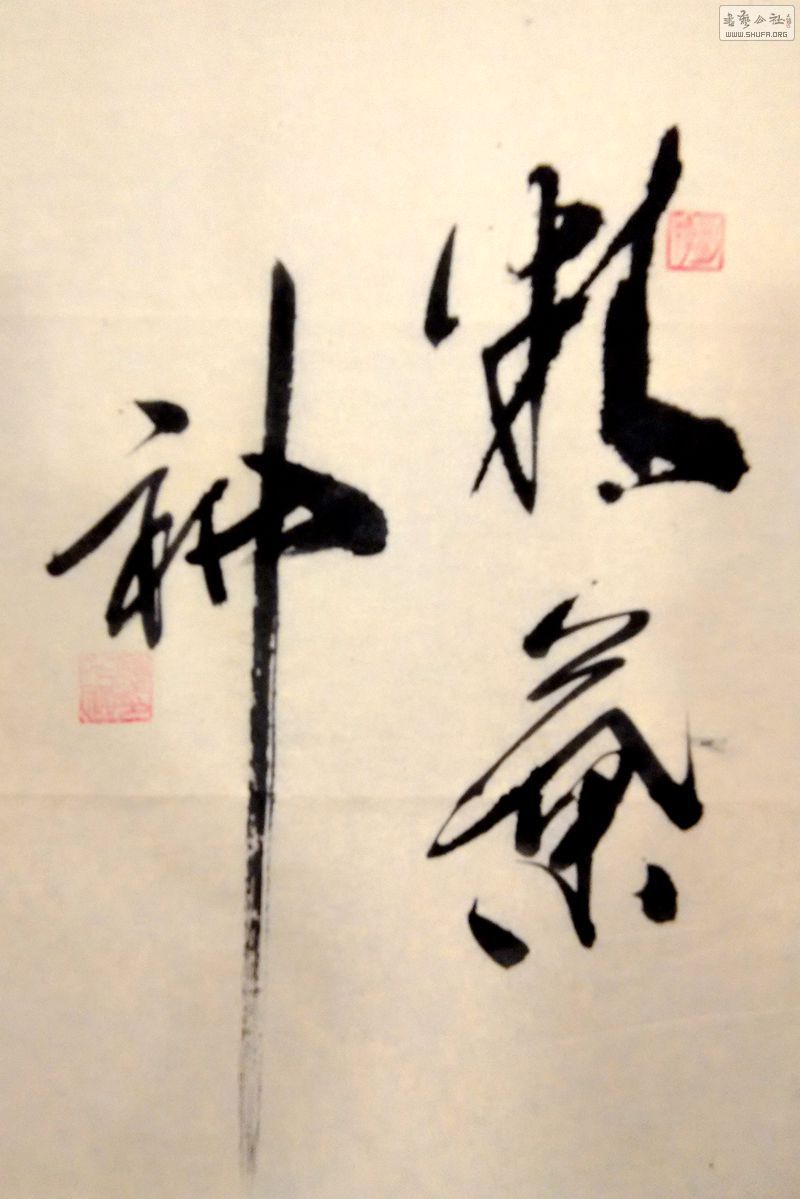 精氣
神
書藝公社
WWW.SHUFA.ORG